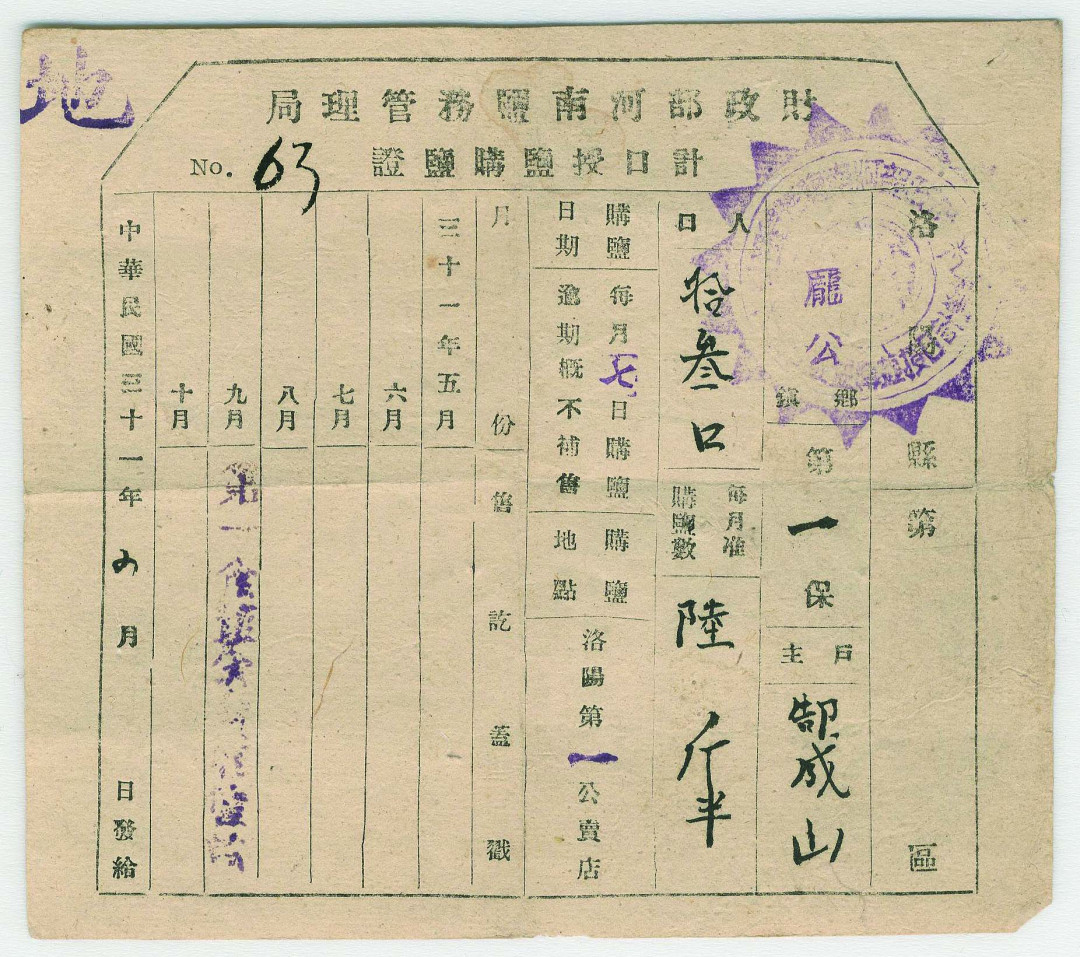 地
財政部河南鹽務管理局
計口授鹽購鹽證
No. 63
洛陽縣第 區
龐公鄉鎮第一保
戶主 郜成山
人口 拾叁口
每月准購鹽數 陸斤半
購鹽日期
每月七日購鹽
逾期概不補售
購鹽地點
洛陽第一公賣店
月份售訖蓋戳
三十一年五月
六月
七月
八月
九月
十月
中華民國三十一年 月 日發給